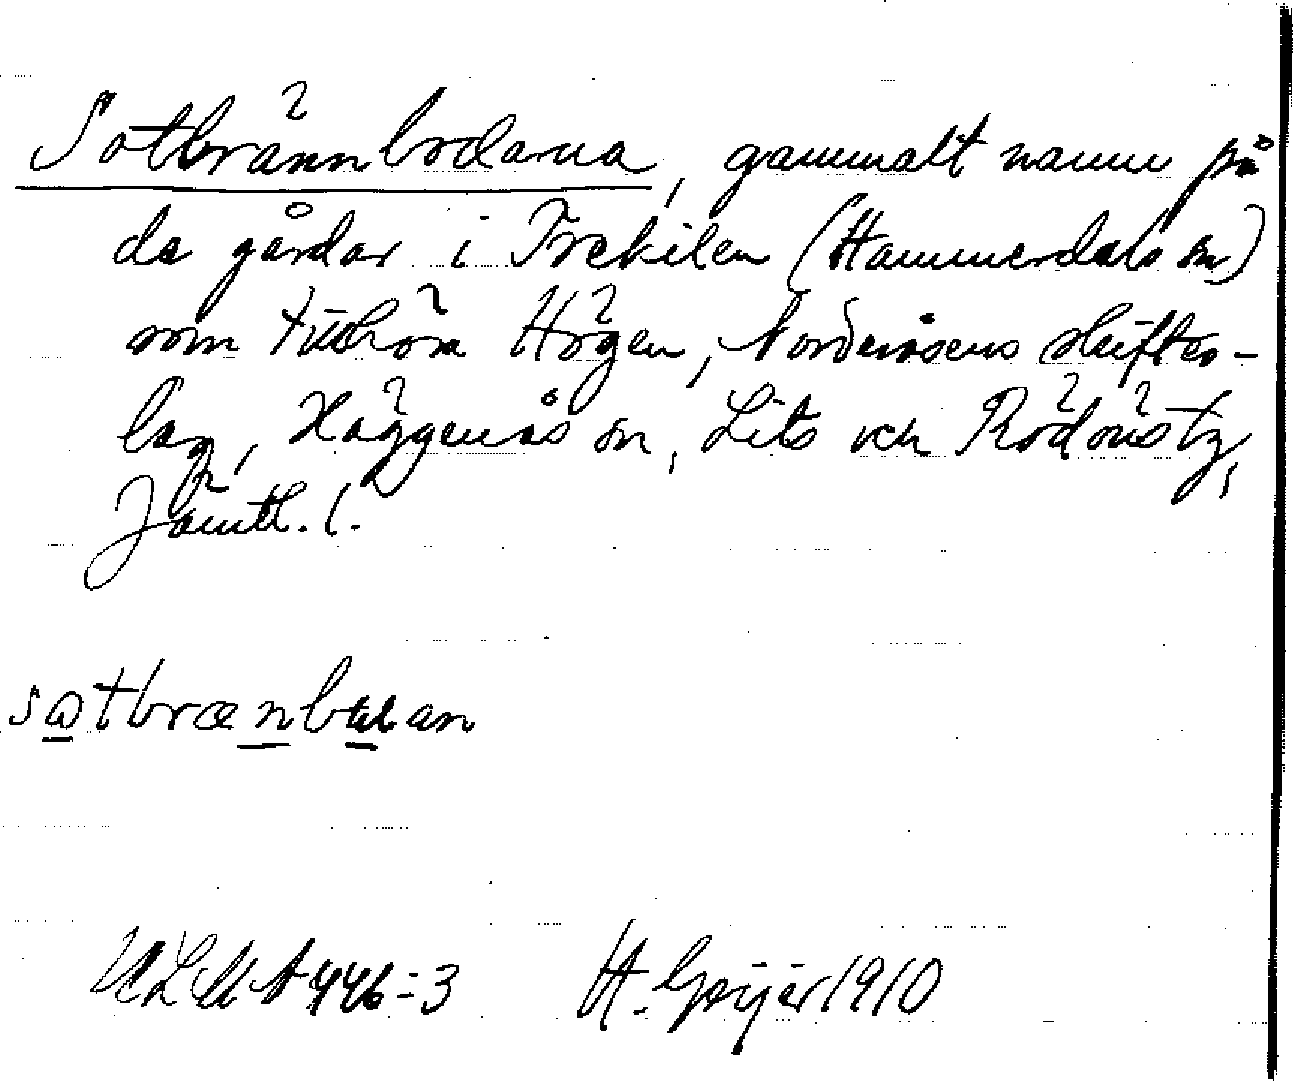 Sotbrännbodarna, gammalt namn på
de gårdar i Trekilen (Hammerdals sn)
som tillhöra Högen, Norderåsens skifts-
lag, Häggenås sn, Lits och Rödöns tg,
Jämtl. l.
sotbrænb an
ULMA 446:3 H. Geijer 1910